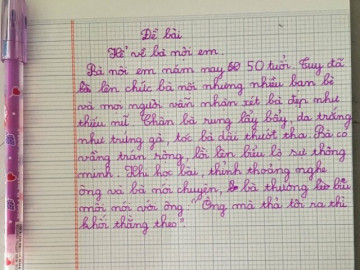 Đề bài
Kể về bà nội em.
Bà nội em năm nay 50 tuổi. Tuy đã
lên chức bà nội nhưng nhiều bạn bè
và mọi người vẫn nhận xét bà đẹp như
thiếu nữ. Chân bà rung lẩy bẩy, da trắng
như trứng gà, tóc bà dài thướt tha. Bà có
vầng trán rộng, lồi lên biểu lộ sự thông
minh. Khi học bài, thỉnh thoảng nghe
ông và bà nói chuyện, bà thường bĩu
môi nói với ông "Ông mà thả tôi ra thì
khối thằng theo".